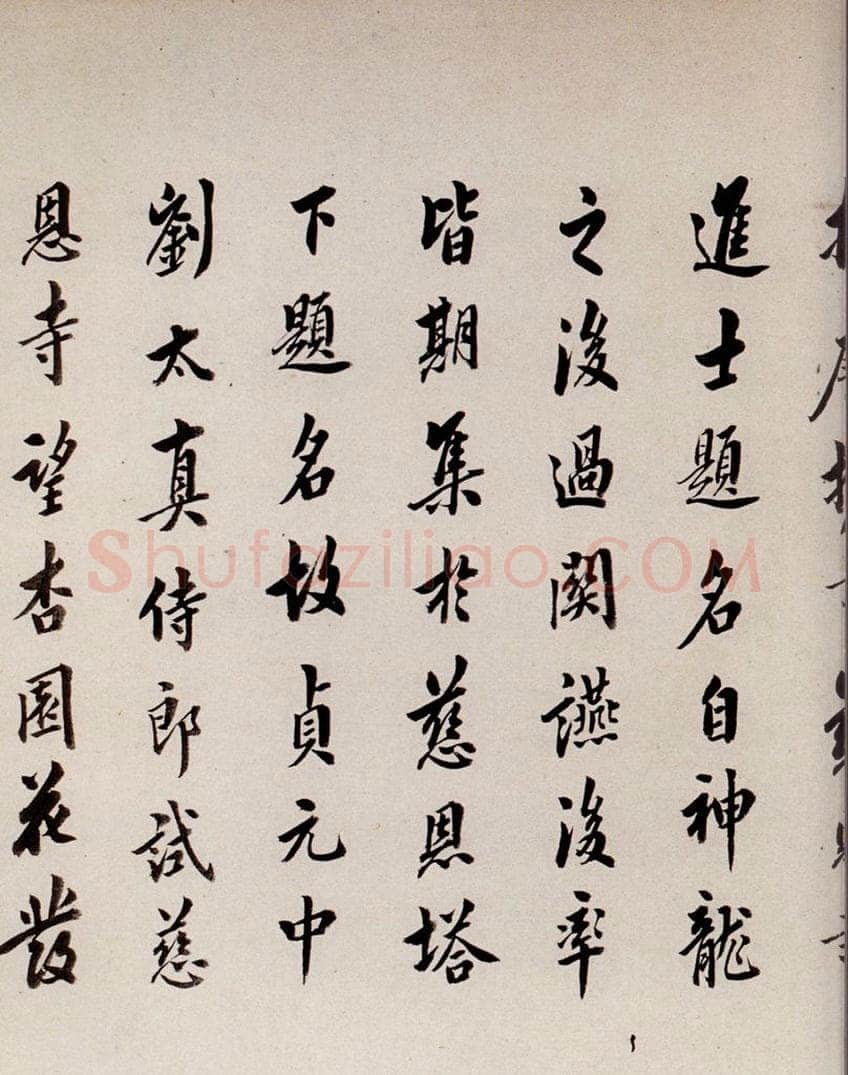 進士題名自神龍
之後過関讌後率
皆期集於慈恩塔
下題名故貞元中
劉太真侍郎試慈
恩寺望杏園花發
Shufaziliao.COM